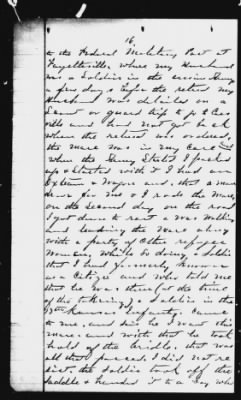 16
to the Federal Military Post at
Fayetteville, where my Husband
was a Soldier in the Army
a few days before the retreat my
Husband was detailed on a
Scout or guard trip to
and had not got back
when the retreat was ordered,
the mare was in my care and
when the Army Started I packed
up & Started with it I had an
Ox team & Wagon and, that a mare
so I rode the Mare,
on the Second day on the road
I got down to rest & was Walking
and leading the Mare along
with a party of Other refugee
Women, while So doing a Soldier
that I had formerly known
as a Citizen and who told me
that he was then (at the time
of the taking) a Soldier in the
Kansas Infantry. Came
to me, and said he I want this
mare and with that he took
hold of the bridle, that was
all that passed, I did not re
sist, the Soldier took off the
Saddle & handed it to a boy who